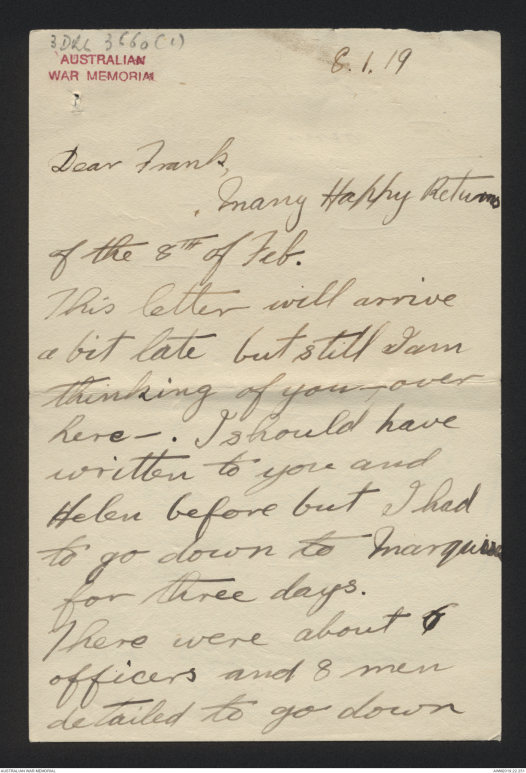 3DRL 3660(1)
AUSTRALIAN
WAR MEMORIAL
8.1.19
Dear Frank,
Many Happy Returns
of the 8TH of Feb.
This letter will arrive
a bit late but still I am
thinking of you – over
here –. I should have
written to you and
Helen before but I had
to go down to Marquise
for three days.
There were about 6
officers and 8 men
detailed to go down
AUSTRALIAN WAR MEMORIAL